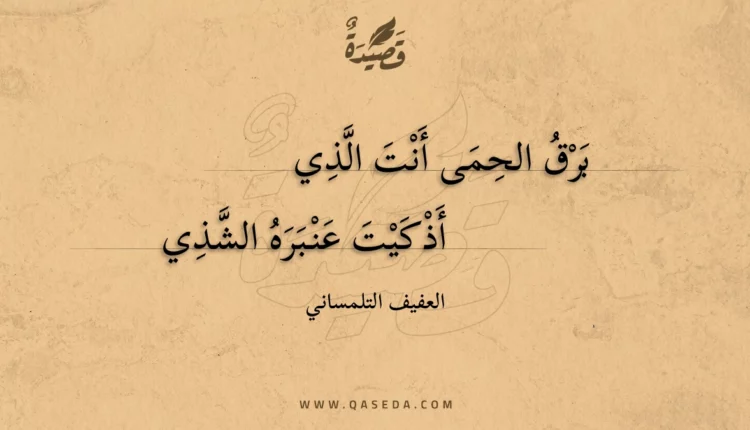 قَصِيدَةٌ
بَرْقُ الحِمَى أَنْتَ الَّذِي
أَذْكَيْتَ عَنْبَرَهُ الشَّذِي
العفيف التلمساني
WWW.QASEDA.COM